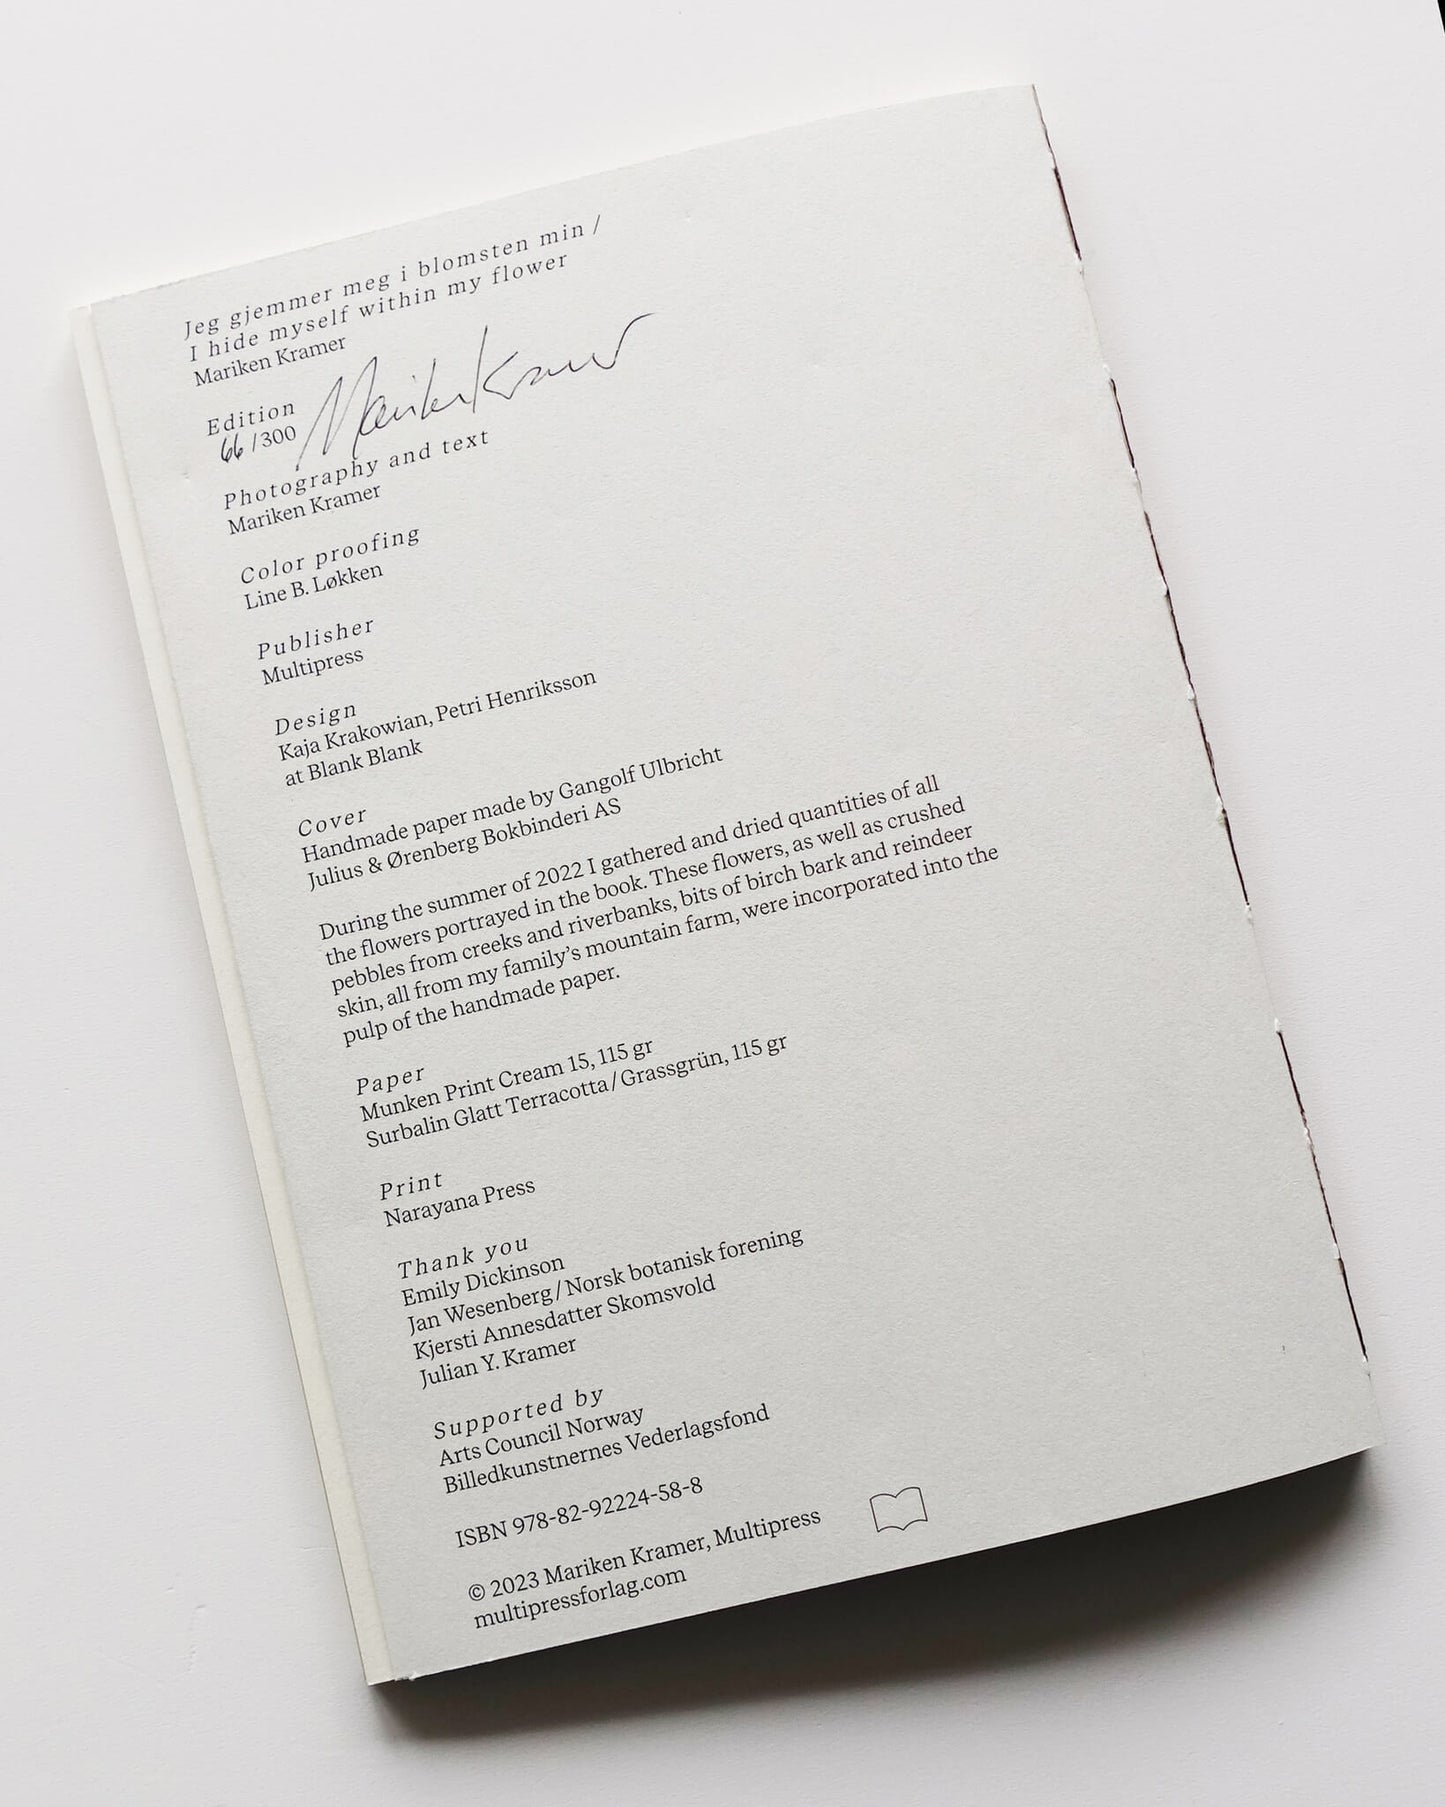 Jeg gjemmer meg i blomsten min /
I hide myself within my flower
Mariken Kramer
Edition
66/300
Mariken Kramer
Photography and text
Mariken Kramer
Color proofing
Line B. Løkken
Publisher
Multipress
Design
Kaja Krakowian, Petri Henriksson
at Blank Blank
Cover
Handmade paper made by Gangolf Ulbricht
Julius & Ørenberg Bokbinderi AS
During the summer of 2022 I gathered and dried quantities of all
the flowers portrayed in the book. These flowers, as well as crushed
pebbles from creeks and riverbanks, bits of birch bark and reindeer
skin, all from my family’s mountain farm, were incorporated into the
pulp of the handmade paper.
Paper
Munken Print Cream 15, 115 gr
Surbalin Glatt Terracotta / Grassgrün, 115 gr
Print
Narayana Press
Thank you
Emily Dickinson
Jan Wesenberg / Norsk botanisk forening
Kjersti Annesdatter Skomsvold
Julian Y. Kramer
Supported by
Arts Council Norway
Billedkunstnernes Vederlagsfond
ISBN 978-82-92224-58-8
© 2023 Mariken Kramer, Multipress
multipressforlag.com